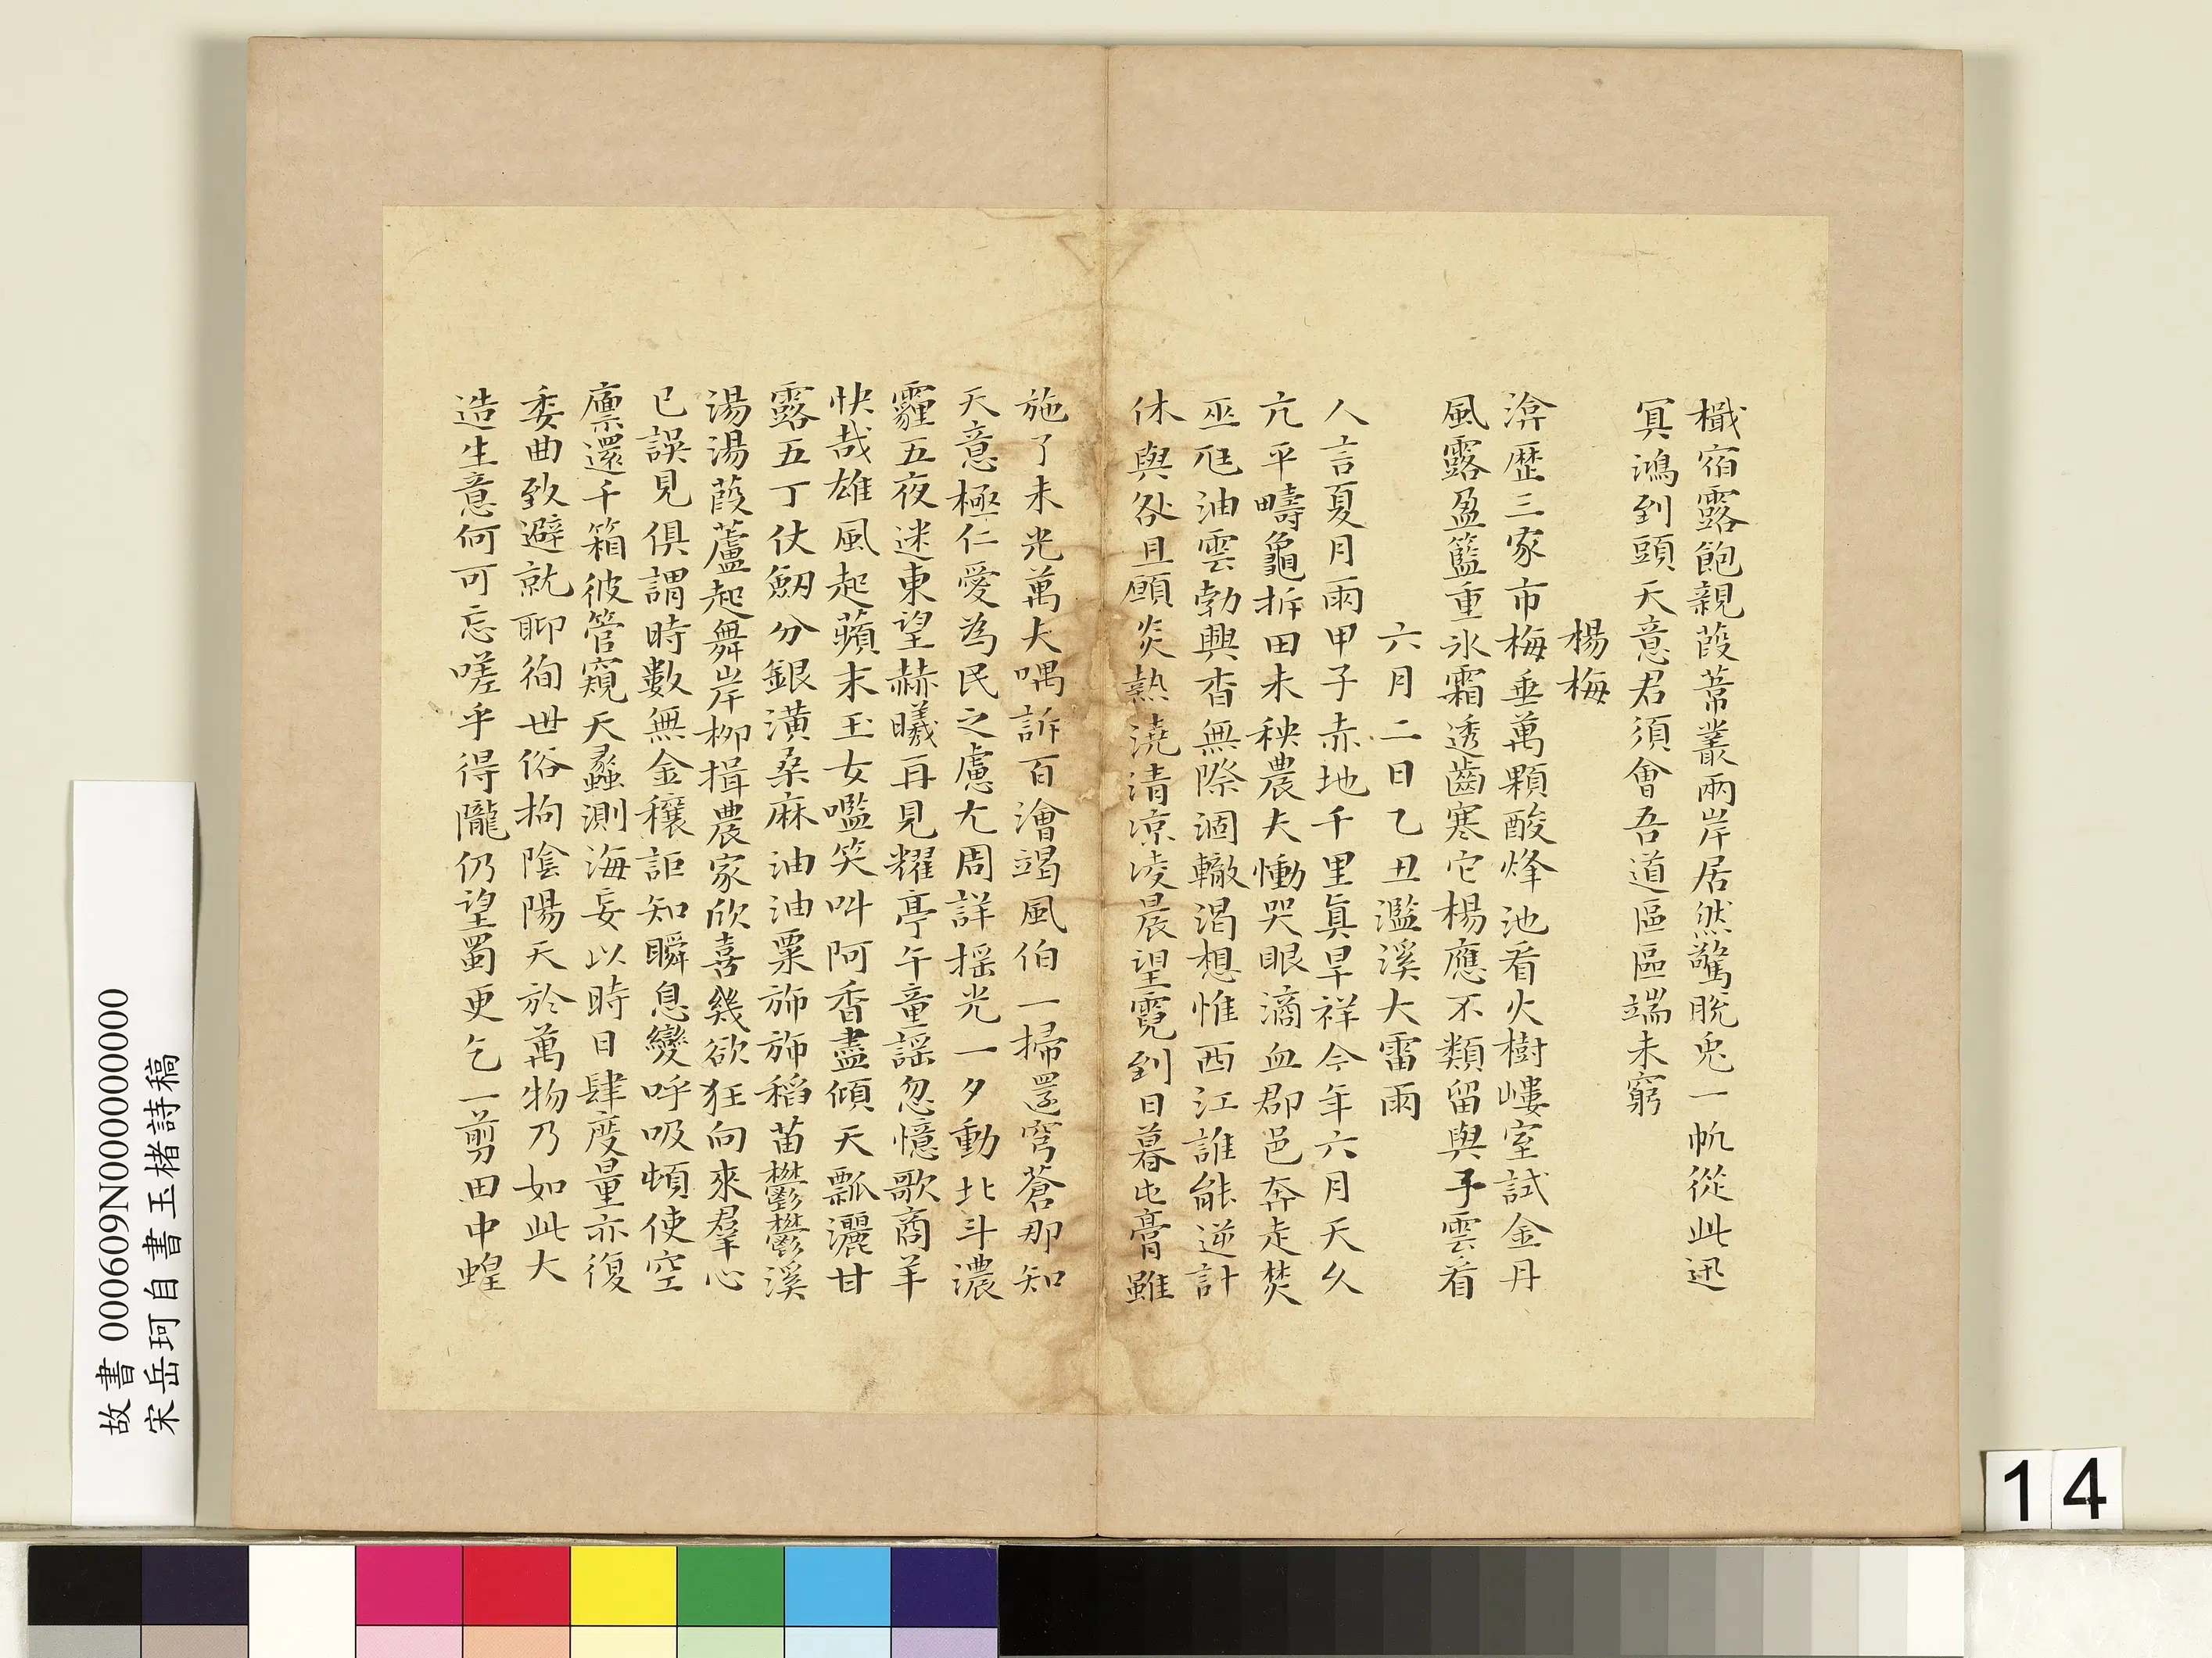 檝宿露飽親葭葦叢兩岸居然驚脫兎一帆從此迅
冥鴻到頭天意君須會吾道區區端未窮
楊梅
渰歷三家市梅垂萬顆酸烽池看火樹嶁室試金丹
風露盈籃重氷霜透齒寒它楊應不類留與子雲看
六月二日乙丑濫溪大雷雨
人言夏月雨甲子赤地千里眞旱祥今年六月天久
亢平疇龜拆田未秧農夫慟哭眼滴血郡邑奔走焚
巫尫油雲勃興杳無際涸轍渴想惟西江誰能逆計
休與咎且願炎熱澆清凉凌晨望霓到日暮屯膏雖
施了未光萬夫喁訴百澮竭風伯一掃還穹蒼那知
天意極仁愛為民之慮尤周詳揺光一夕動北斗濃
霾五夜迷東望赫曦再見耀亭午童謡忽憶歌商羊
快哉雄風起蘋末玉女嚂笑叫阿香盡傾天瓢灑甘
露五丁仗劒分銀潢桑麻油油粟斾斾稻苗鬱鬱溪
湯湯葭蘆起舞岸柳揖農家欣喜幾欲狂向來羣心
已誤見俱謂時數無金穰詎知瞬息變呼吸頓使空
廪還千箱彼管窺天蠡測海妄以時日肆度量亦復
委曲致避就聊徇世俗拘陰陽天於萬物乃如此大
造生意何可忘嗟乎得隴仍望蜀更乞一剪田中蝗
故書 000609N000000000
宋岳珂自書玉楮詩稿
14